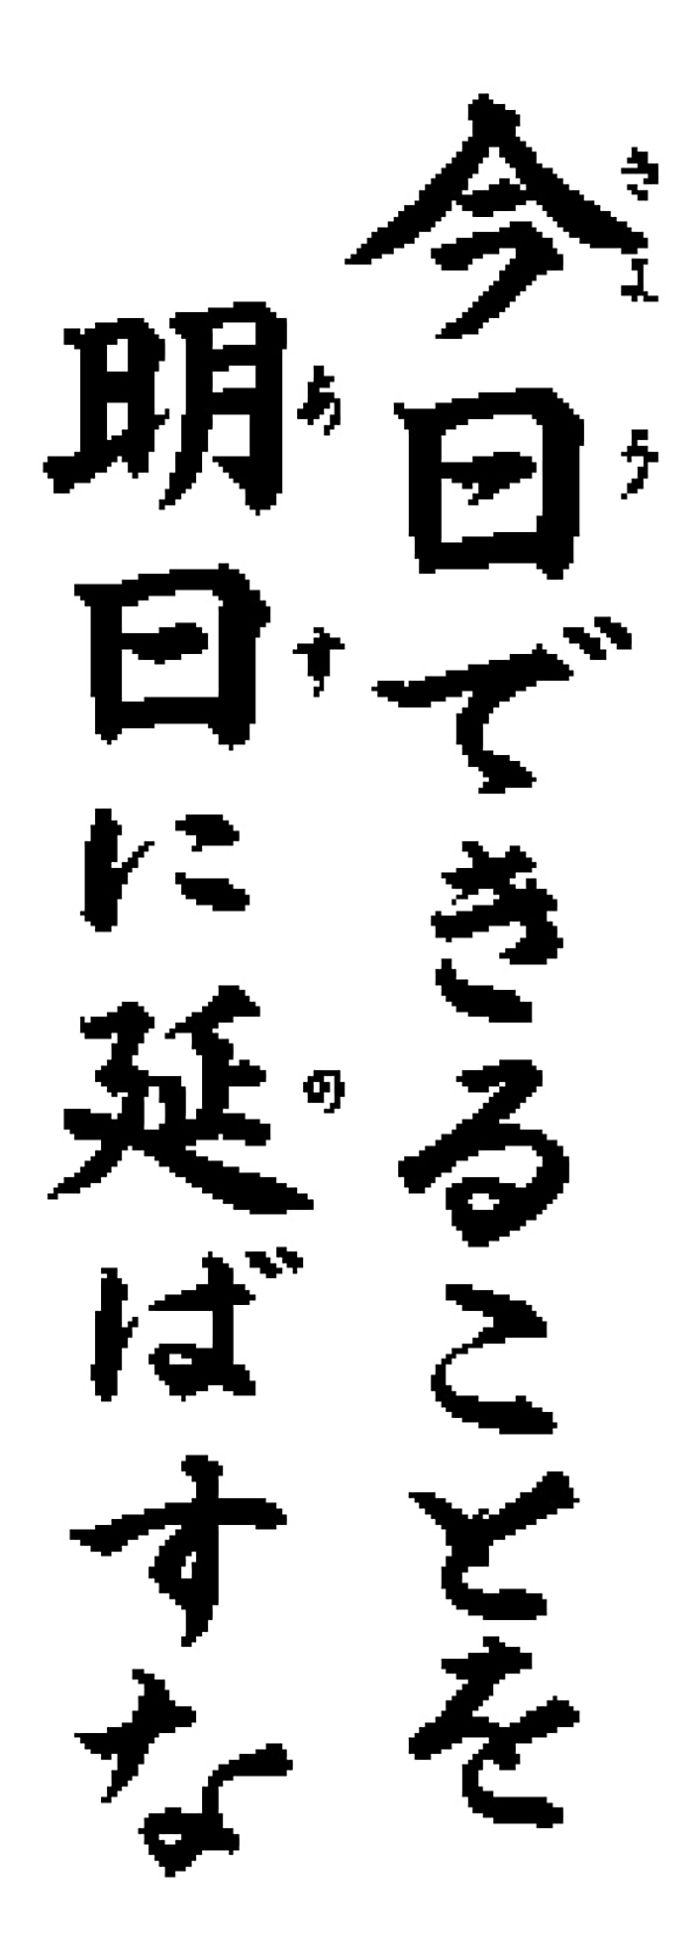 今日できることを
きょう
明日に延ばすな
あす
の